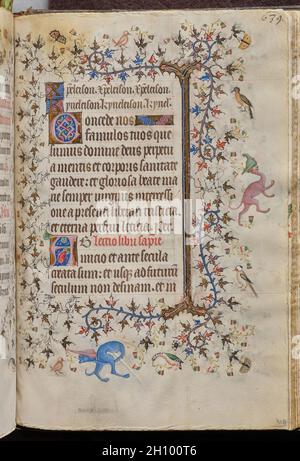 xpeleison. Xpeleison. Xpeleison.
kyrieleison. Kyrieleison. Kyriel.
Concede nos
famulos tuos que
sumus domine deus perpetu
a mentis et corporis sanitate
gaudere: et gloriosa beate ma
rie semper virginis intercessi
one a presenti liberari tristicia
et eterna perfrui leticia. per
Lectio libri sapie
Ab inicio et ante secula
creata sum: et usque ad futurum
seculum non desinam. et in
alamy
2H100T6